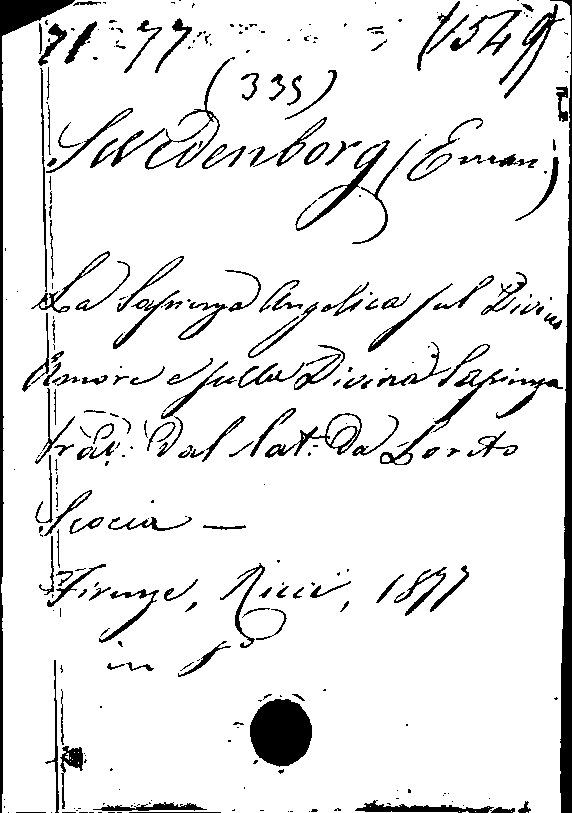 71. 77 (1549)
(335)
Swedenborg (Eman.)
La Sapienza Angelica sul Divino
Amore e sulla Divina Sapienza
trad. dal lat. da Loreto
Scocia —
Firenze, Ricci, 1877
in 8°